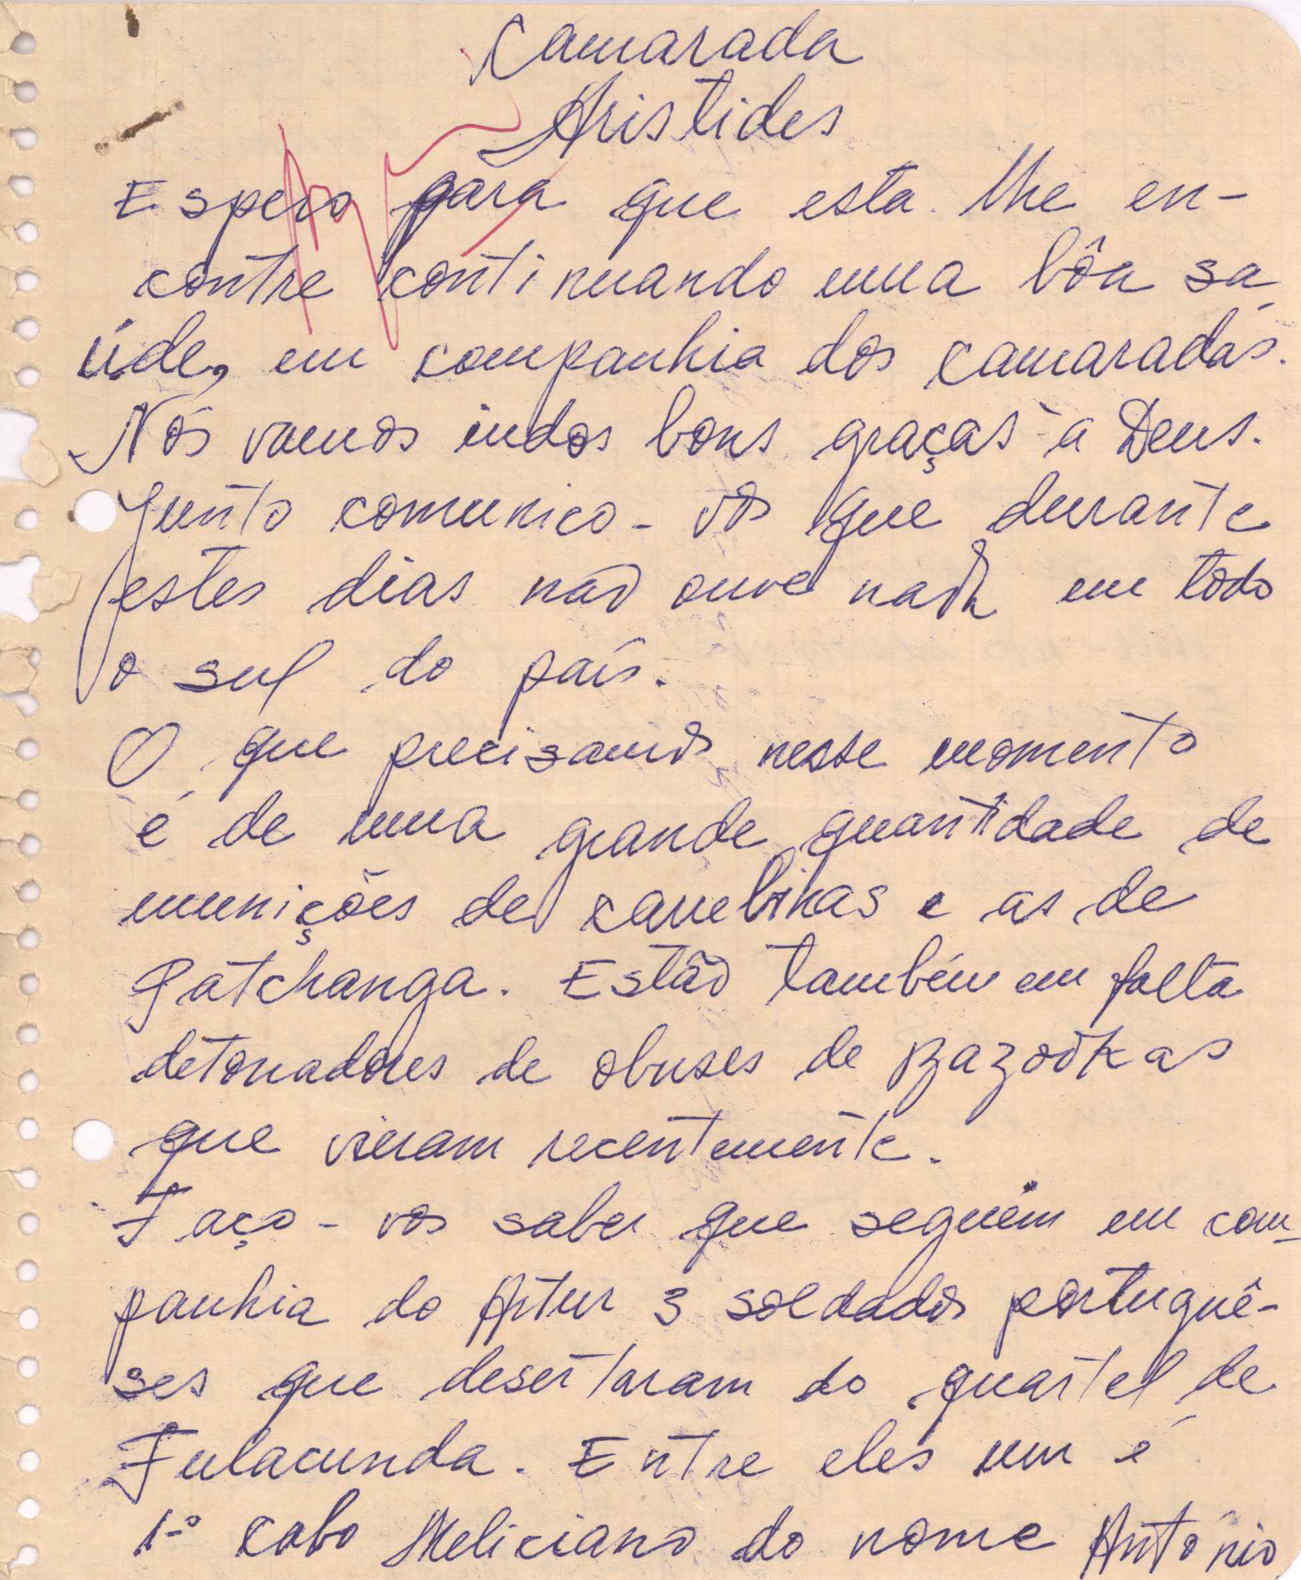 Camarada
Aristides
Espero para que esta lhe en-
contre continuando uma bôa sa-
úde, em companhia dos camaradas.
Nós vamos indos bons graças à Deus.
Junto comunico-vos que durante
estes dias não ouve nada em todo
o sul do país.
O que precisamos nesse momento
é de uma grande quantidade de
munições de carabinas e as de
Patchanga. Estão também em falta
detonadores de obuses de Bazookas
que vieram recentemente.
Faço-vos saber que seguem em com-
panhia do Artur 3 soldados portuguê-
ses que desertaram do quartel de
Fulacunda. Entre eles um é
1º cabo Meliciano do nome António